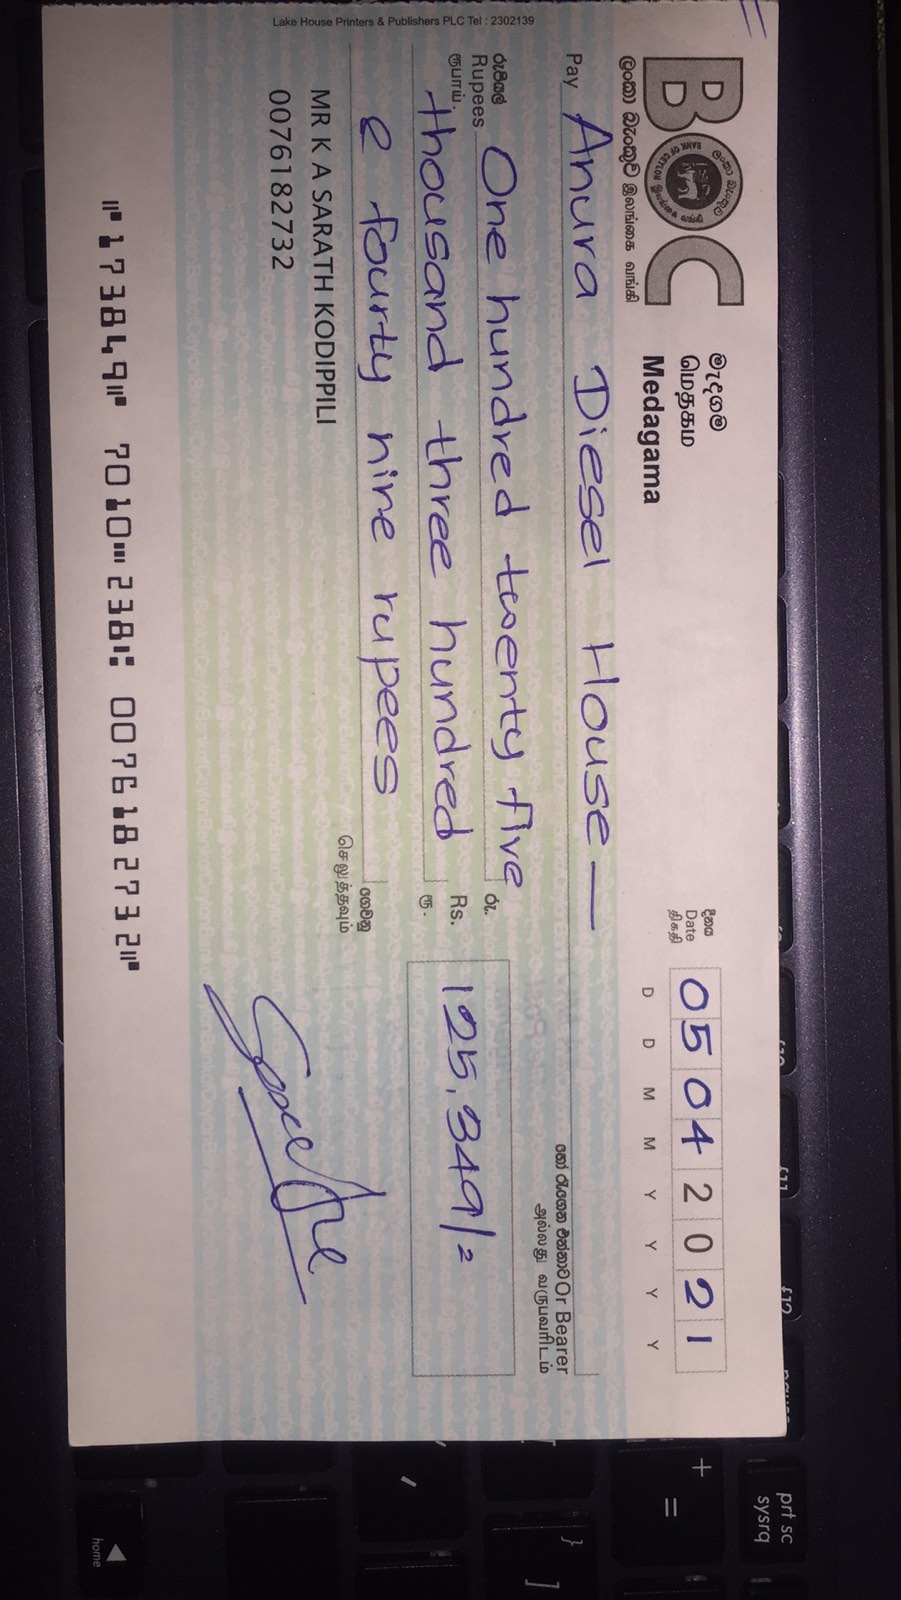 Lake House Printers & Publishers PLC Tel : 2302139
BOC
ලංකා බැංකුව இலங்கை வங்கி
BANK OF CEYLON
මැදගම
மெதகம
Medagama
දිනය
Date
திகதி
05042021
D D M M Y Y Y Y
Pay Anura Diesel House—
හෝ රැගෙන එන්නාට Or Bearer
அல்லது வருபவரிடம்
රුපියල්
Rupees
ரூபாய்.
One hundred twenty five
thousand three hundred
e fourty nine rupees
රු.
Rs.
ரூ.
125,349/=
ගෙවනු
செலுத்தவும்
MR K A SARATH KODIPPILI
0076182732
⑈173849⑈ 7010⑉238⑆ 0076182732⑈
prt sc
sysrq
f11
f12
+
=
}
]
home